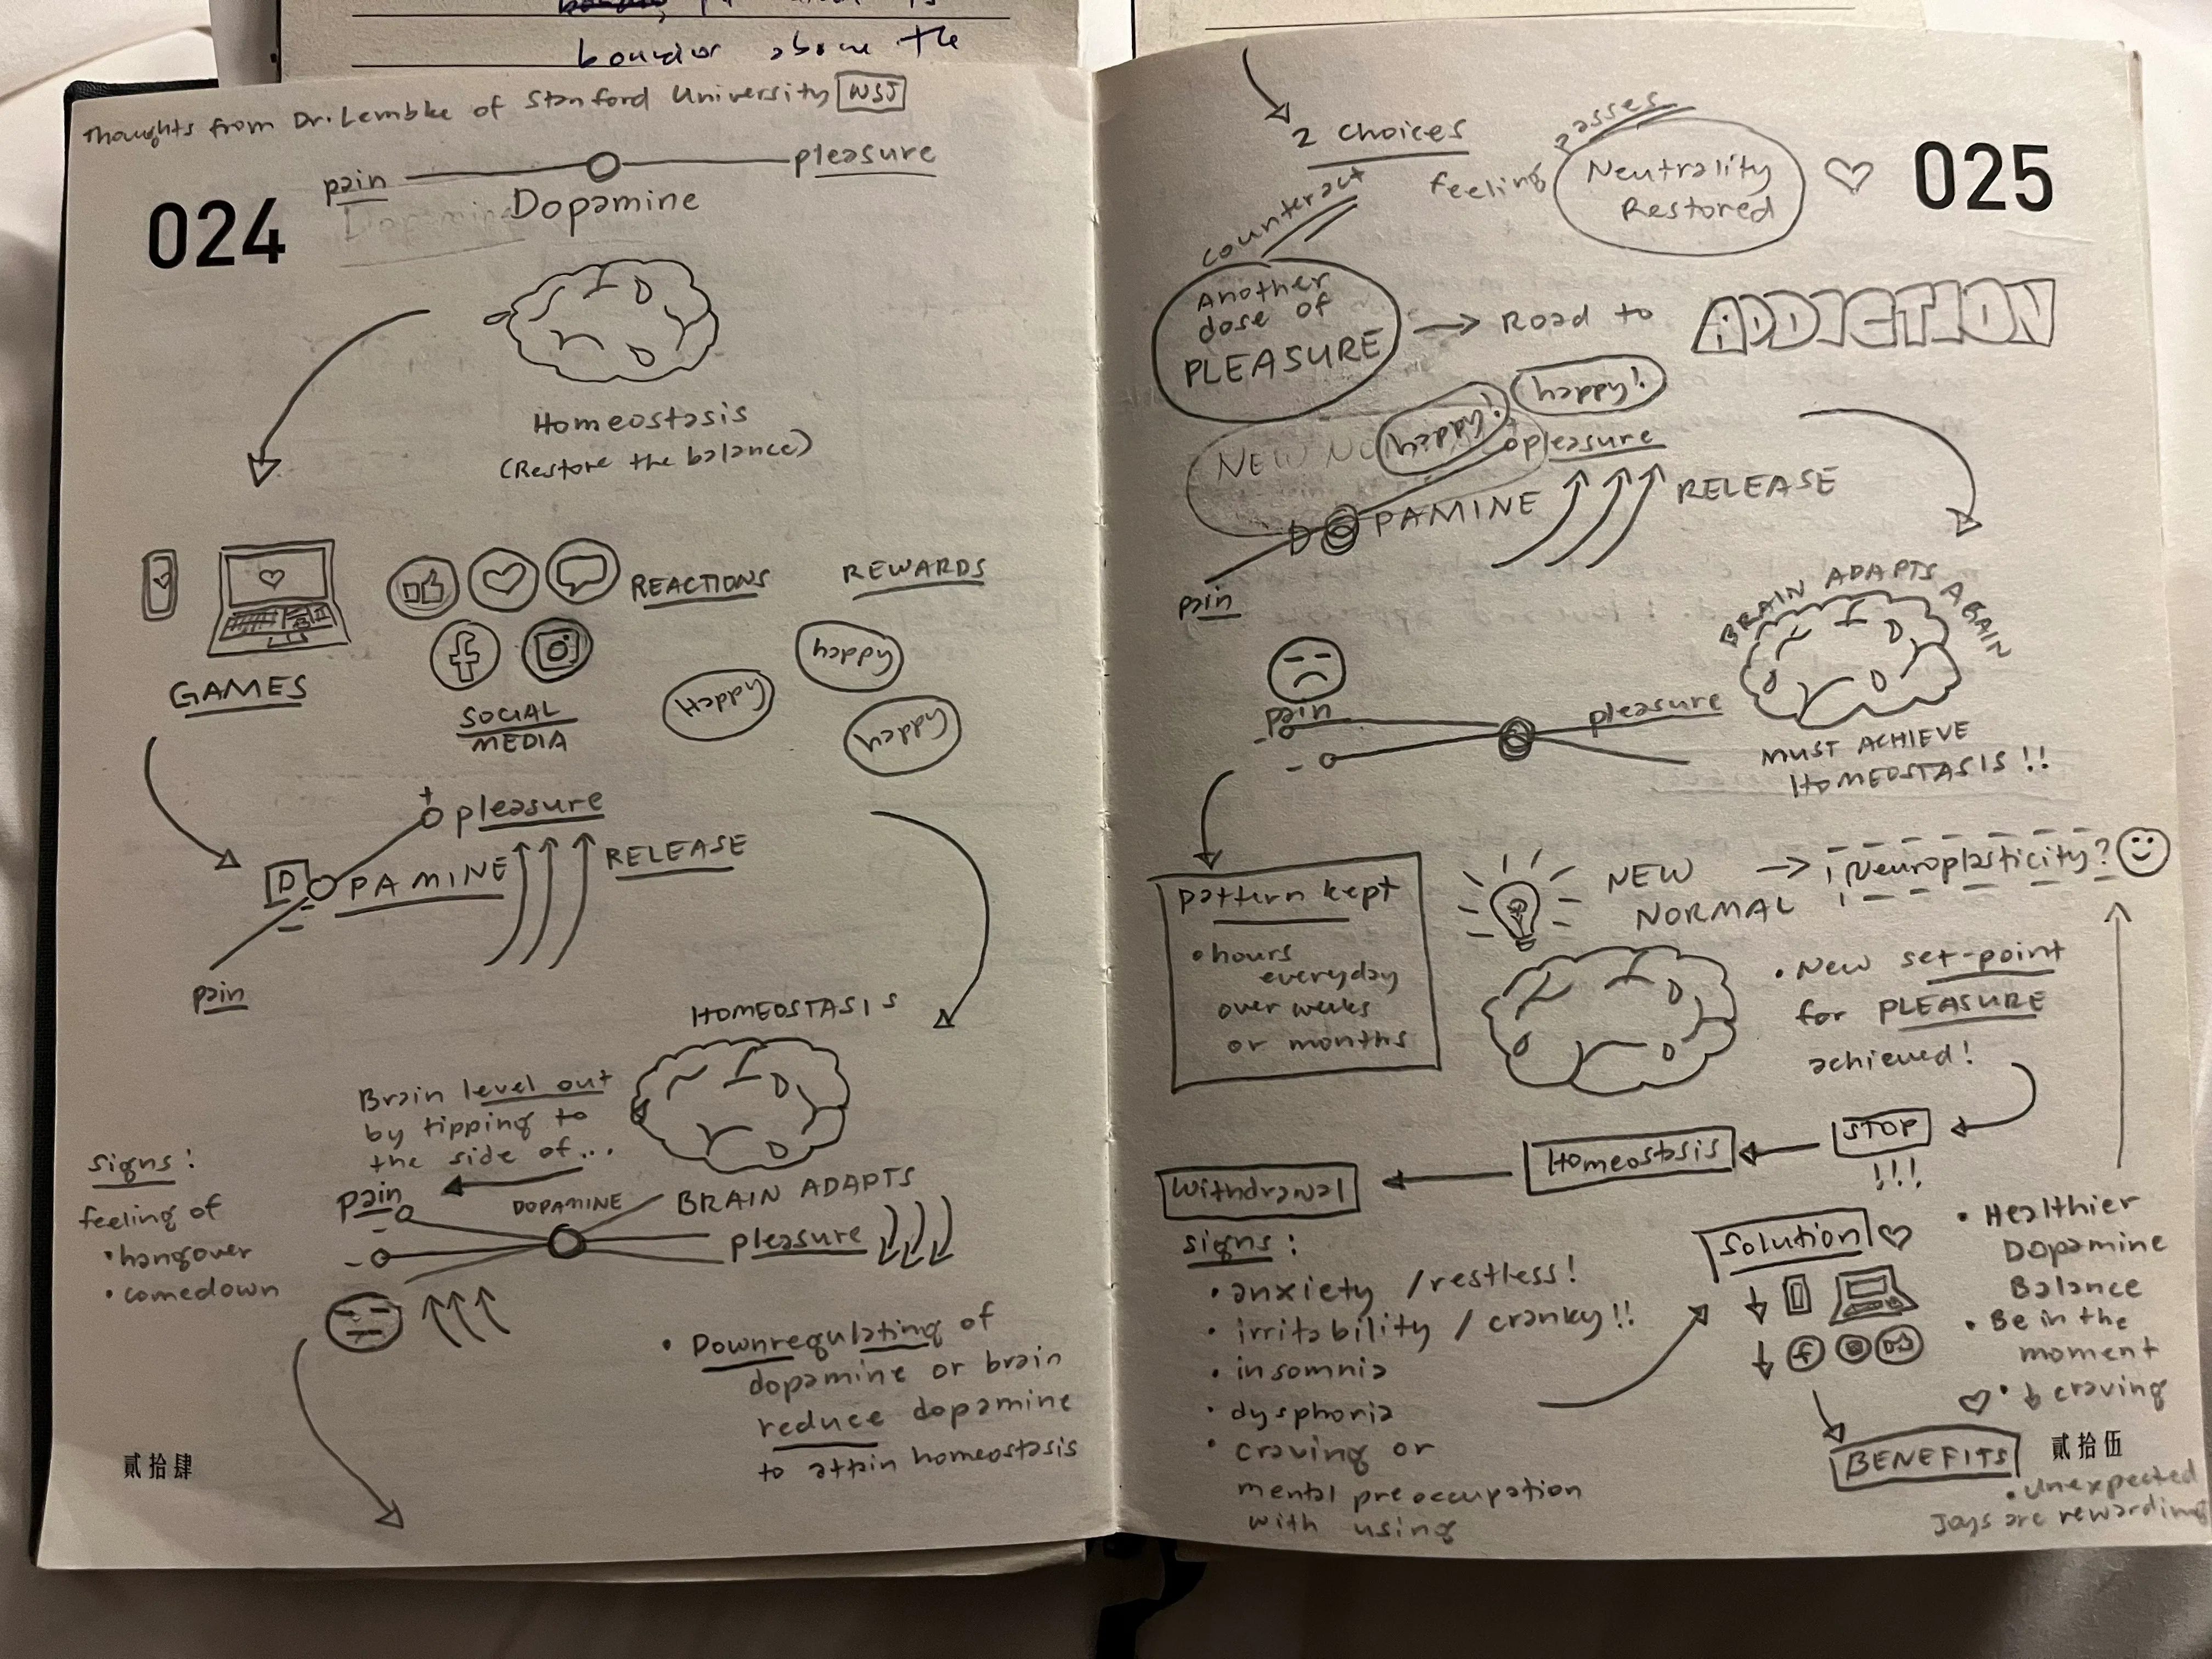 bourdor above the
Thoughts from Dr. Lembke of Stanford University WSJ
pain
pleasure
Dopamine
Dopamine
024
Homeostasis
(Restore the balance)
GAMES
REACTIONS
REWARDS
f
SOCIAL
MEDIA
Happy
happy
happy
+
pleasure
DOPAMINE
RELEASE
pain
HOMEOSTASIS
Brain level out
by tipping to
the side of...
signs:
feeling of
• hangover
• comedown
pain
DOPAMINE
BRAIN ADAPTS
pleasure
• Downregulating of
dopamine or brain
reduce dopamine
to attain homeostasis
貳拾肆
2 choices
counteract
feeling passes
Neutrality
Restored
025
Another
dose of
PLEASURE
Road to ADDICTION
NEW NO
happy!
happy!
pleasure
DOPAMINE
RELEASE
pain
BRAIN ADAPTS AGAIN
pain
pleasure
MUST ACHIEVE
HOMEOSTASIS!!
pattern kept
• hours
everyday
over weeks
or months
NEW
NORMAL
Neuroplasticity?
• New set-point
for PLEASURE
achieved!
STOP
!!!
Homeostasis
Withdrawal
signs:
• anxiety / restless!
• irritability / cranky!!
• insomnia
• dysphoria
• craving or
mental preoccupation
with using
Solution
f
• Healthier
Dopamine
Balance
• Be in the
moment
• ↓ craving
BENEFITS
• Unexpected
Joys are rewarding
貳拾伍